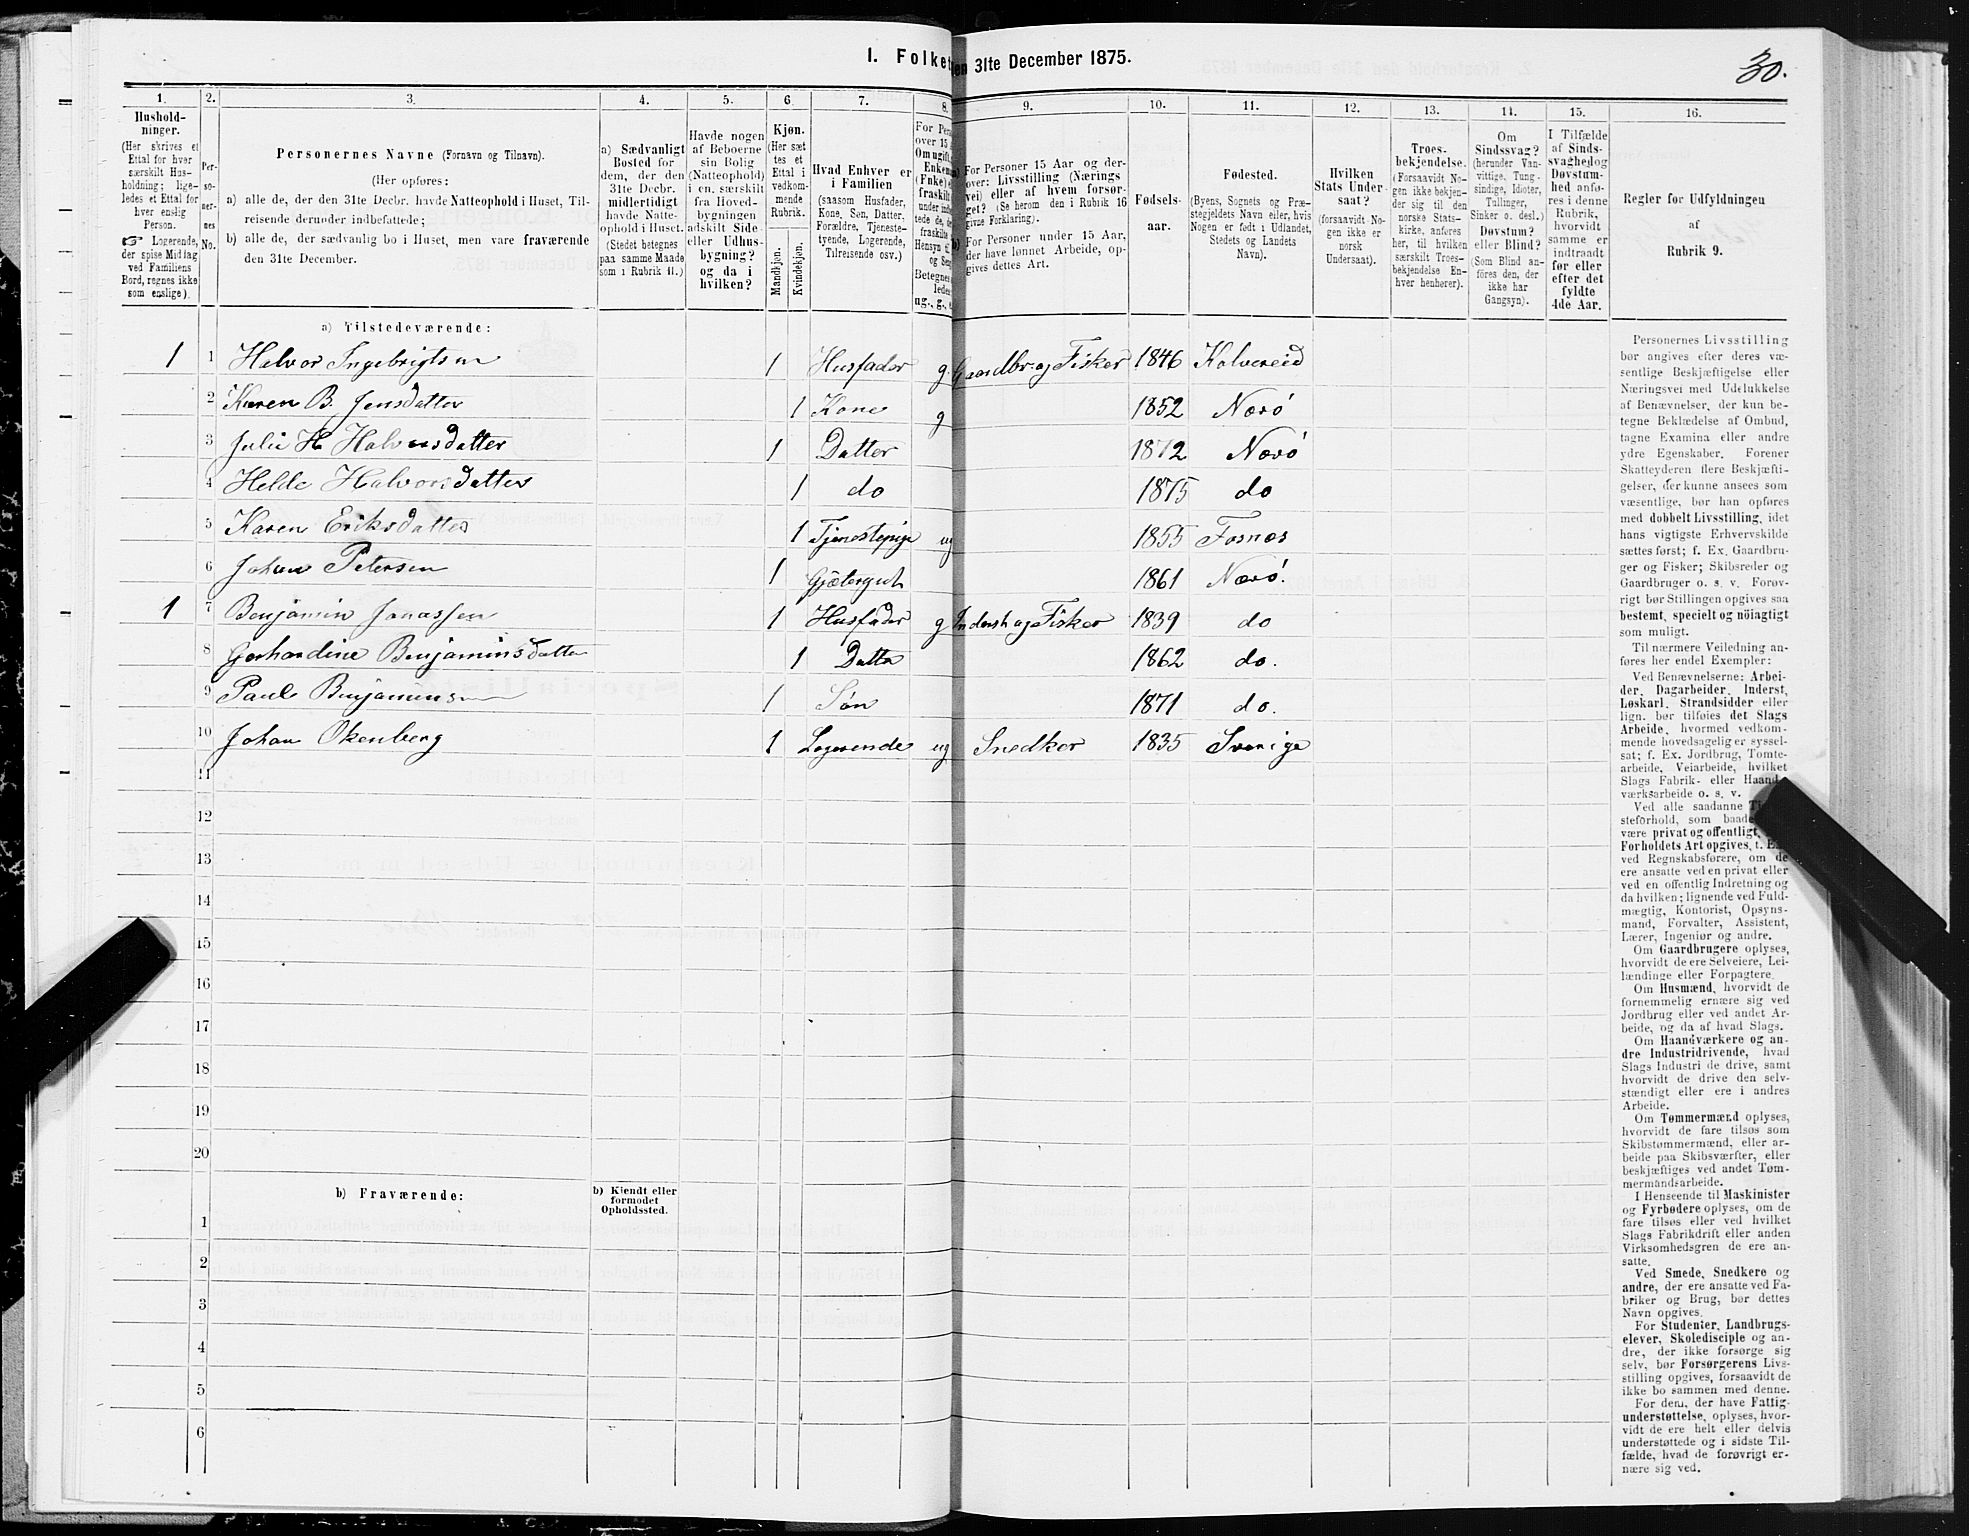 I. Folket en 31te December 1875.
30.
1. 2. 3. 4. 5. 6. 7. 8. 9. 10. 11. 12. 13. 14. 15. 16.
Hushold-
ninger.
(Her skrives et
Ettal for hver
særskilt Hus-
holdning; lige-
ledes et Ettal for
hver enslig
Person.
☞ Logerende,
der spise Middag
ved Familiens
Bord, regnes ikke
som enslige).
Per-
so-
ner-
nes
No.
Personernes Navne (Fornavn og Tilnavn).
(Her opføres:
a) alle de, der den 31te Decbr. havde Natteophold i Huset, Til-
reisende derunder indbefattede;
b) alle de, der sædvanlig bo i Huset, men vare fraværende
den 31te December.
a) Sædvanligt
Bosted for
dem, der den
31te Decbr.
midlertidigt
havde Natte-
ophold i Huset.
(Stedet betegnes
paa samme Maade
som i Rubrik 11.)
Havde nogen
af Beboerne
sin Bolig
(Natteophold)
i en særskilt
fra Hoved-
bygningen
adskilt Side-
eller Udhus-
bygning?
og da i
hvilken?
Kjøn.
(Her sæt
tes et
Ettal i
vedkom-
mende
Rubrik.
Mandkjøn.
Kvindekjøn.
Hvad Enhver er
i Familien
(saasom Husfader,
Kone, Søn, Datter,
Forældre, Tjeneste-
tyende, Logerende,
Tilreisende osv.)
For Pers
over 15 A
Om ugift,
Enkem
(Enke) e
fraskilt
under indb
tede de, de
fraskilte
Hensyn ti
og Sen
Betegnes
ledes
ug., g., e
For Personer 15 Aar og der-
over: Livsstilling (Nærings
vei) eller af hvem forsør-
get? (Se herom den i Rubrik 16
givne Forklaring).
For Personer under 15 Aar,
der have lønnet Arbeide, op-
gives dettes Art.
Fødsels-
aar.
Fødested.
(Byens, Sognets og Præ-
stegjeldets Navn eller, hvis
Nogen er født i Udlandet,
Stedets og Landets
Navn).
Hvilken
Stats Under-
saat?
(forsaavidt No-
gen ikke er
norsk
Undersaat).
Troes-
bekjendelse.
(Forsaavidt No-
gen ikke bekjen-
der sig til den
norske Stats-
kirke, anføres
her, til hvilken
særskilt Troes-
bekjendelse En-
hver henhører).
Om
Sindssvag?
(herunder Van-
vittige, Tung-
sindige, Idioter,
Tullinger,
Sinker o. desl.)
Døvstum?
eller Blind?
(Som Blind an-
føres den, der
ikke har
Gangsyn).
I Tilfælde
af Sinds-
svaghed og
Døvstum-
hed anfø-
res i denne
Rubrik,
hvorvidt
samme er
indtraadt
før eller
efter det
fyldte
4de Aar.
Regler for Udfyldningen
af
Rubrik 9.
a) Tilstedeværende:
1 1 Halvor Ingebrigtsen 1 Husfader g. Gaardbr. og Fisker 1846 Kolvereid
2 Karen B. Jensdatter 1 Kone g 1852 Nærö
3 Julie H Halvorsdatter 1 Datter 1872 Nærö
4 Helde Halvorsdatter 1 do 1875 do
5 Karen Eriksdatter 1 Tjenestepige ug 1855 Fosnes
6 Johan Petersen 1 Gjætergut 1861 Nærö.
1 7 Benjamin Jonassen 1 Husfader g Inderst og Fisker 1839 do
8 Gerhardine Benjaminsdatter 1 Datter 1862 do.
9 Paul Benjaminsen 1 Sön 1871 do.
10 Johan Okenberg 1 Logerende ug Snedker 1835 Sverige
11
12
13
14
15
16
17
18
19
20
b) Fraværende:
b) Kjendt eller
formodet
Opholdssted.
1
2
3
4
5
6
Personernes Livsstilling
bør angives efter deres væ-
sentlige Beskjæftigelse eller
Næringsvei med Udelukkelse
af Benævnelser, der kun be-
tegne Beklædelse af Ombud,
tagne Examina eller andre
ydre Egenskaber. Forener
Skatteyderen flere Beskjæfti-
gelser, der kunne ansees som
væsentlige, bør han opføres
med dobbelt Livsstilling, idet
hans vigtigste Erhvervskilde
sættes først; f. Ex. Gaardbru-
ger og Fisker; Skibsreder og
Gaardbruger o. s. v. Forøv-
rigt bør Stillingen opgives saa
bestemt, specielt og nöiagtigt
som muligt.
Til nærmere Veiledning an-
føres her endel Exempler:
Ved Benævnelserne: Arbei-
der, Dagarbeider, Inderst,
Løskarl, Strandsidder eller
lign. bør tilføies det Slags
Arbeide, hvormed vedkom-
mende hovedsagelig er syssel-
sat; f. Ex. Jordbrug, Tomte-
arbeide, Veiarbeide, hvilket
Slags Fabrik- eller Haand-
værksarbeide o. s. v.
Ved alle saadanne
steforhold, som baade
være privat og offentligt,
Forholdets Art opgives, t. E
ved Regnskabsførere, om de
ere ansatte ved en privat eller
ved en offentlig Indretning og
da hvilken; lignende ved Fuld-
mægtig, Kontorist, Opsyns-
mand, Forvalter, Assistent,
Lærer, Ingeniør og andre.
Om Gaardbrugere oplyses,
hvorvidt de ere Selveiere, Lei-
lændinge eller Forpagtere.
Om Husmænd, hvorvidt de
fornemmelig ernære sig ved
Jordbrug eller ved andet Ar-
beide, og da af hvad Slags.
Om Haandværkere og an-
dre Industridrivende, hvad
Slags Industri de drive, samt
hvorvidt de drive den selv-
stændigt eller ere i andres
Arbeide.
Om Tømmermænd oplyses,
hvorvidt de fare tilsøs som
Skibstømmermænd, eller ar-
beide paa Skibsværfter, eller
beskjæftiges ved andet Tøm-
mermandsarbeide.
I Henseende til Maskinister
og Fyrbødere oplyses, om de
fare tilsøs eller ved hvilket
Slags Fabrikdrift eller anden
Virksomhedsgren de ere an-
satte.
Ved Smede, Snedkere og
andre, der ere ansatte ved Fa-
briker og Brug, bør dettes
Navn opgives.
For Studenter, Landbrugs-
elever, Skoledisciple og an-
dre, der ikke forsørge sig
selv, bør Forsørgerens Livs-
stilling opgives, forsaavidt de
ikke bo sammen med denne.
For dem, der have Fattig-
understøttelse, oplyses, hvor-
vidt de ere helt eller delvis
understøttede og i sidste Til-
fælde, hvad de forøvrigt er-
nære sig ved.